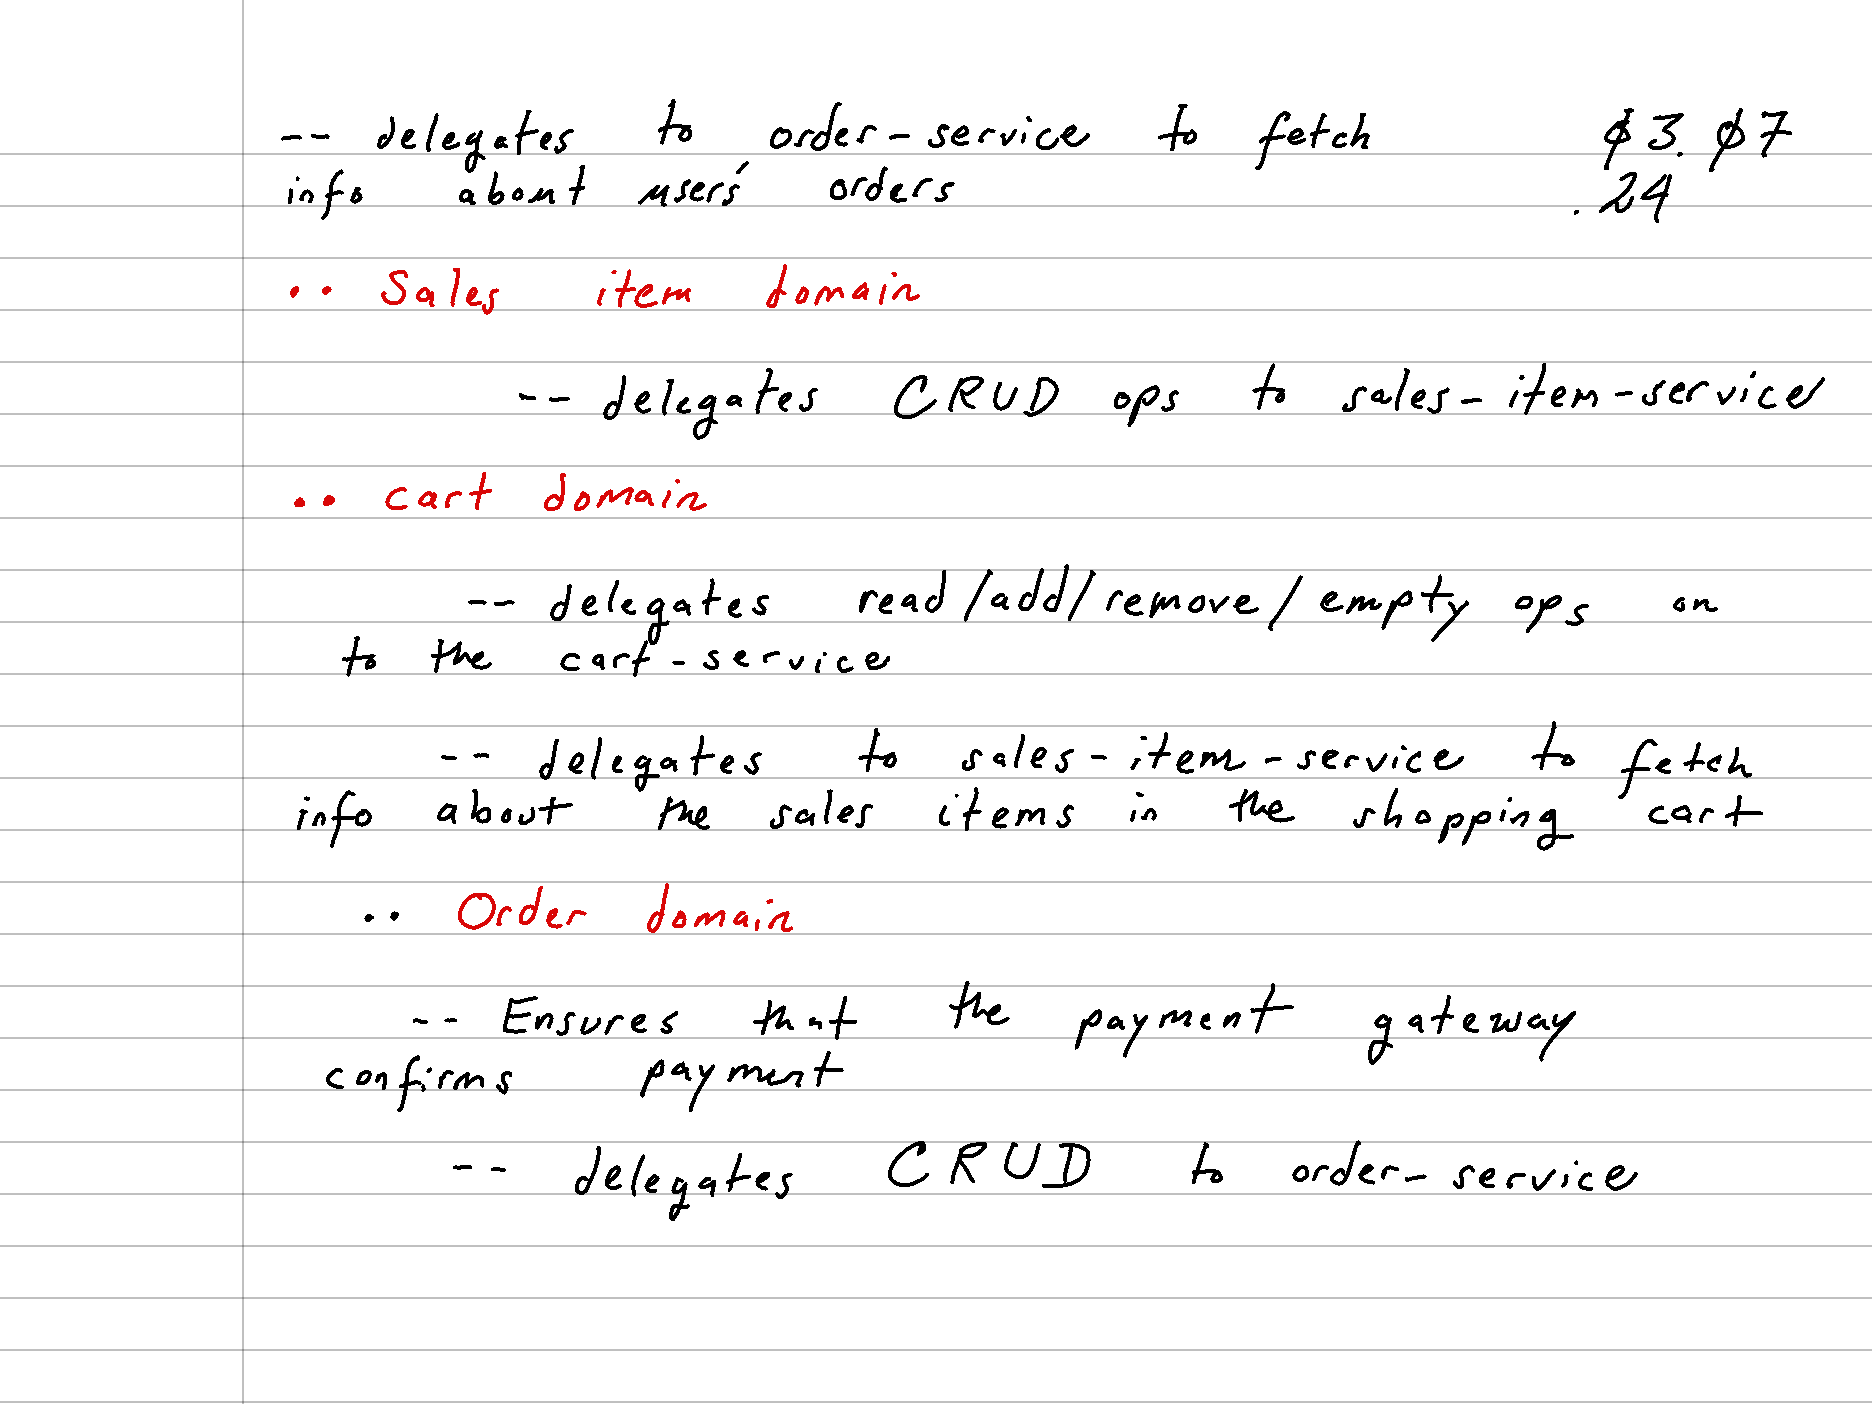 -- delegates to order-service to fetch 03.07
info about users' orders .24
.. Sales item domain
-- delegates CRUD ops to sales-item-service
.. cart domain
-- delegates read/add/remove/empty ops on
to the cart-service
-- delegates to sales-item-service to fetch
info about the sales items in the shopping cart
.. Order domain
-- Ensures that the payment gateway
confirms payment
-- delegates CRUD to order-service